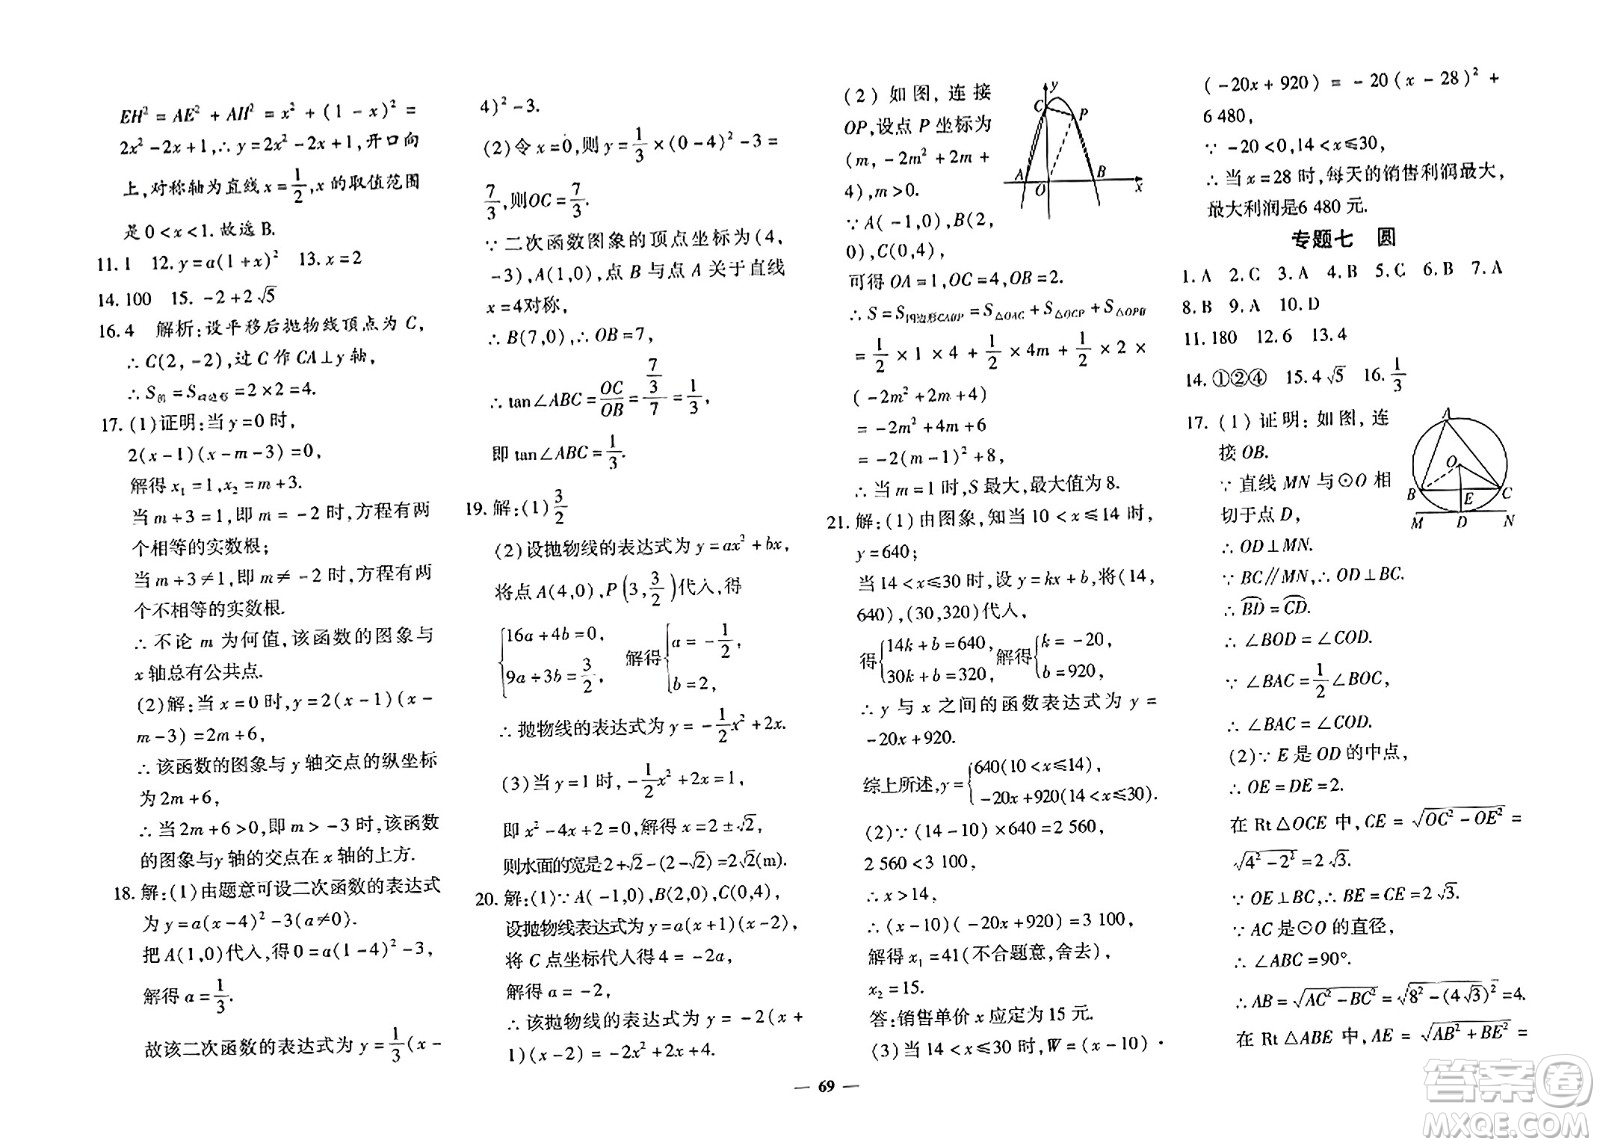 EH²=AE²+AH²=x²+(1-x)²=
2x²-2x+1,∴y=2x²-2x+1,开口向
上,对称轴为直线x=1/2,x的取值范围
是0<x<1.故选B.
11.1 12.y=a(1+x)² 13.x=2
14.100 15.-2+2√5
16.4 解析:设平移后抛物线顶点为C,
∴C(2,-2),过C作CA⊥y轴,
∴S阴=S四边形=2×2=4.
17.(1)证明:当y=0时,
2(x-1)(x-m-3)=0,
解得x₁=1,x₂=m+3.
当m+3=1,即m=-2时,方程有两
个相等的实数根;
当m+3≠1,即m≠-2时,方程有两
个不相等的实数根.
∴不论m为何值,该函数的图象与
x轴总有公共点.
(2)解:当x=0时,y=2(x-1)(x-
m-3)=2m+6,
∴该函数的图象与y轴交点的纵坐标
为2m+6,
∴当2m+6>0,即m>-3时,该函数
的图象与y轴的交点在x轴的上方.
18.解:(1)由题意可设二次函数的表达式
为y=a(x-4)²-3(a≠0).
把A(1,0)代入,得0=a(1-4)²-3,
解得a=1/3.
故该二次函数的表达式为y=1/3(x-
4)²-3.
(2)令x=0,则y=1/3×(0-4)²-3=
7/3,则OC=7/3.
∵二次函数图象的顶点坐标为(4,
-3),A(1,0),点B与点A关于直线
x=4对称,
∴B(7,0),∴OB=7,
∴tan∠ABC=OC/OB=(7/3)/7=1/3,
即tan∠ABC=1/3.
19.解:(1)3/2
(2)设抛物线的表达式为y=ax²+bx,
将点A(4,0),P(3,3/2)代入,得
{16a+4b=0, 9a+3b=3/2. 解得{a=-1/2, b=2,
∴抛物线的表达式为y=-1/2x²+2x.
(3)当y=1时,-1/2x²+2x=1,
即x²-4x+2=0,解得x=2±√2,
则水面的宽是2+√2-(2-√2)=2√2(m).
20.解:(1)∵A(-1,0),B(2,0),C(0,4),
设抛物线的表达式为y=a(x+1)(x-2),
将C点坐标代入得4=-2a,
解得a=-2,
∴该抛物线的表达式为y=-2(x+
1)(x-2)=-2x²+2x+4.
(2)如图,连接
OP,设点P坐标为
(m,-2m²+2m+
4),m>0.
∵A(-1,0),B(2,
0),C(0,4),
y
C
P
A
O
B
x
可得OA=1,OC=4,OB=2.
∴S=S四边形CABP=S△OAC+S△OCP+S△OPB
=1/2×1×4+1/2×4m+1/2×2×
(-2m²+2m+4)
=-2m²+4m+6
=-2(m-1)²+8,
∴当m=1时,S最大,最大值为8.
21.解:(1)由图象,知当10<x≤14时,
y=640;
当14<x≤30时,设y=kx+b,将(14,
640),(30,320)代入,
得{14k+b=640, 30k+b=320, 解得{k=-20, b=920,
∴y与x之间的函数表达式为y=
-20x+920.
综上所述,y={640(10<x≤14), -20x+920(14<x≤30).
(2)∵(14-10)×640=2 560,
2 560<3 100,
∴x>14,
∴(x-10)(-20x+920)=3 100,
解得x₁=41(不合题意,舍去),
x₂=15.
答:销售单价x应定为15元.
(3)当14<x≤30时,W=(x-10)·
(-20x+920)=-20(x-28)²+
6 480,
∵-20<0,14<x≤30,
∴当x=28时,每天的销售利润最大,
最大利润是6 480元.
专题七 圆
1.A 2.C 3.A 4.B 5.C 6.B 7.A
8.B 9.A 10.D
11.180 12.6 13.4
14.①②④ 15.4√5 16.1/3
17.(1)证明:如图,连
接OB.
∵直线MN与⊙O相
切于点D,
A
O
B
E
C
M
D
N
∴OD⊥MN.
∵BC∥MN,∴OD⊥BC.
∴B͡D=C͡D.
∴∠BOD=∠COD.
∵∠BAC=1/2∠BOC,
∴∠BAC=∠COD.
(2)∵E是OD的中点,
∴OE=DE=2.
在Rt△OCE中,CE=√(OC²-OE²)=
√(4²-2²)=2√3.
∵OE⊥BC,∴BE=CE=2√3.
∵AC是⊙O的直径,
∴∠ABC=90°.
∴AB=√(AC²-BC²)=√(8²-(4√3)²)=4.
在Rt△ABE中,AE=√(AB²+BE²)=
— 69 —
答案圈
MXQE.COM